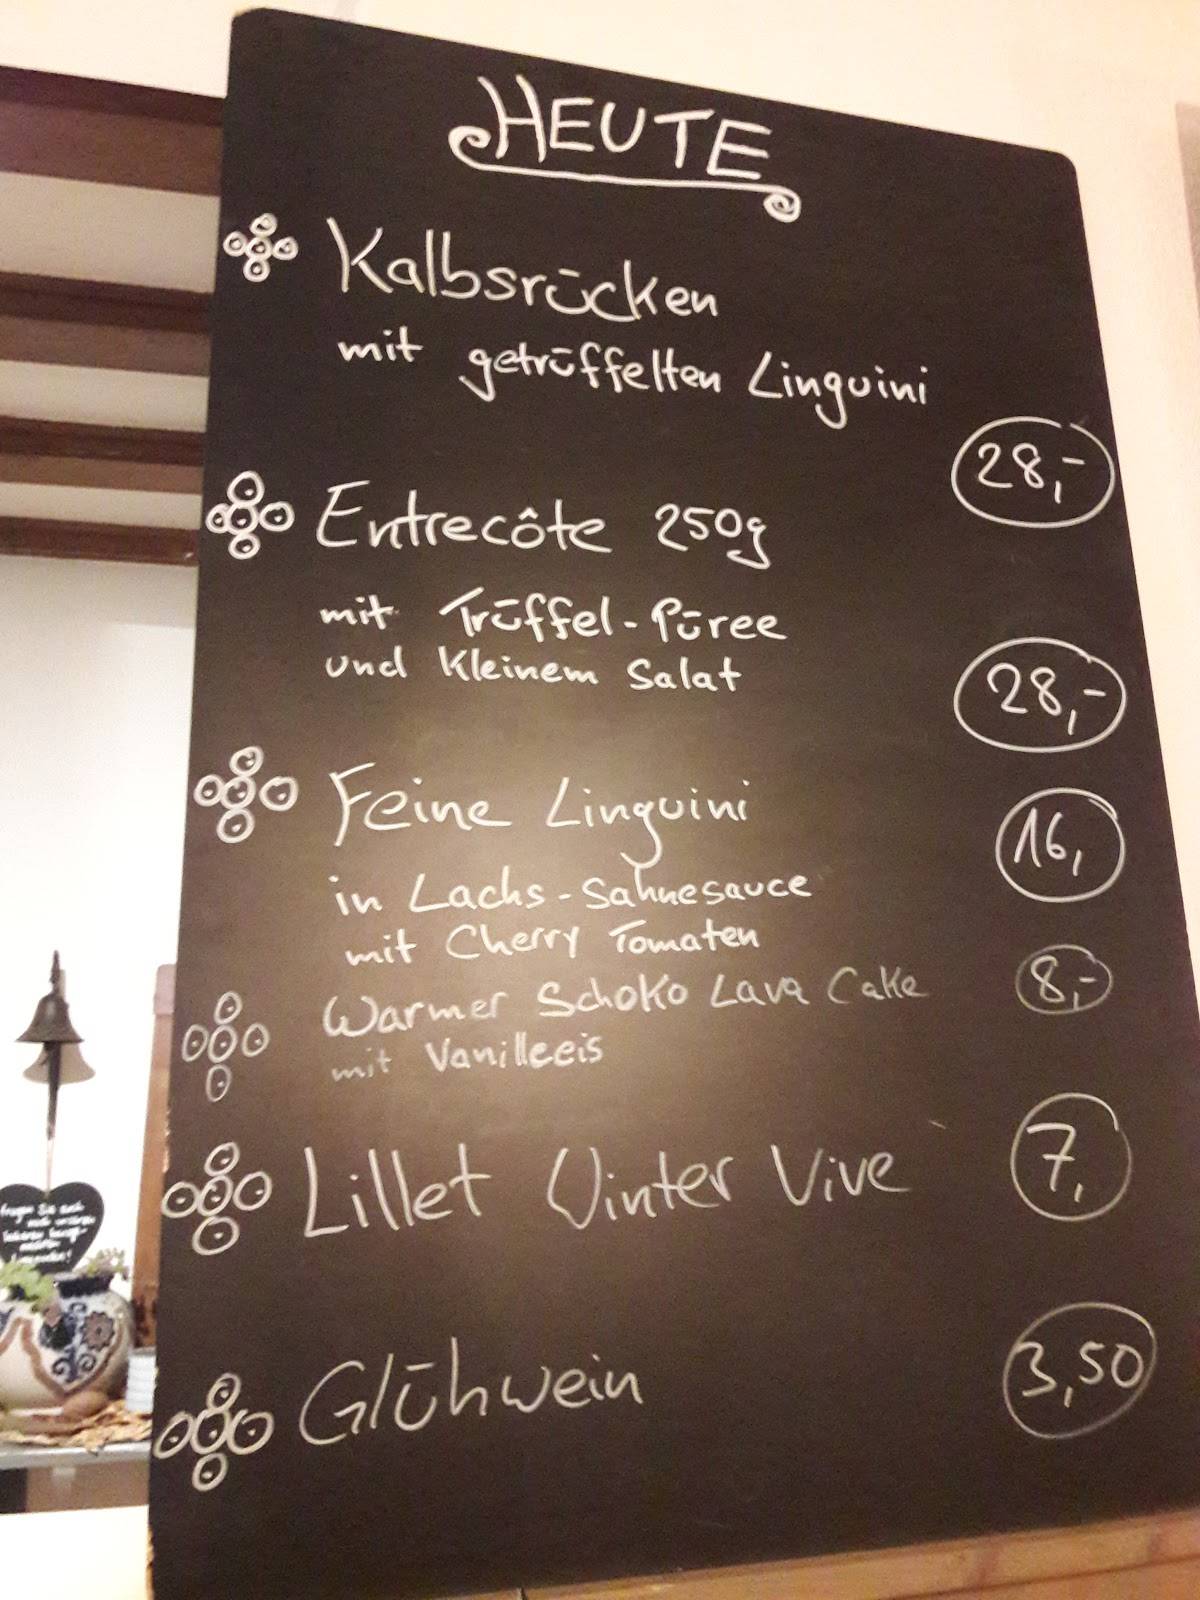 HEUTE
Kalbsrücken
mit getrüffelten Linguini
28,-
Entrecôte 250g
mit Trüffel-Püree
und Kleinem Salat
28,-
Feine Linguini
16,
in Lachs-Sahnesauce
mit Cherry Tomaten
Warmer Schoko Lava Cake
8,-
mit Vanilleeis
Lillet Winter Vive
7,
Glühwein
3,50
fragen Sie auch
nach unseren